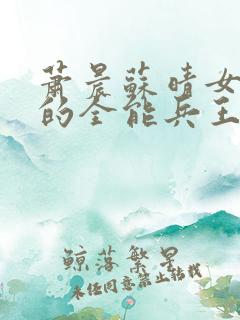 萧晨蘇晴女
的全能兵王
鲸落繁星
未经同意禁止转载